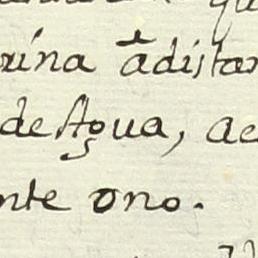 rína ā distan
de Agua, ac
nte o no.